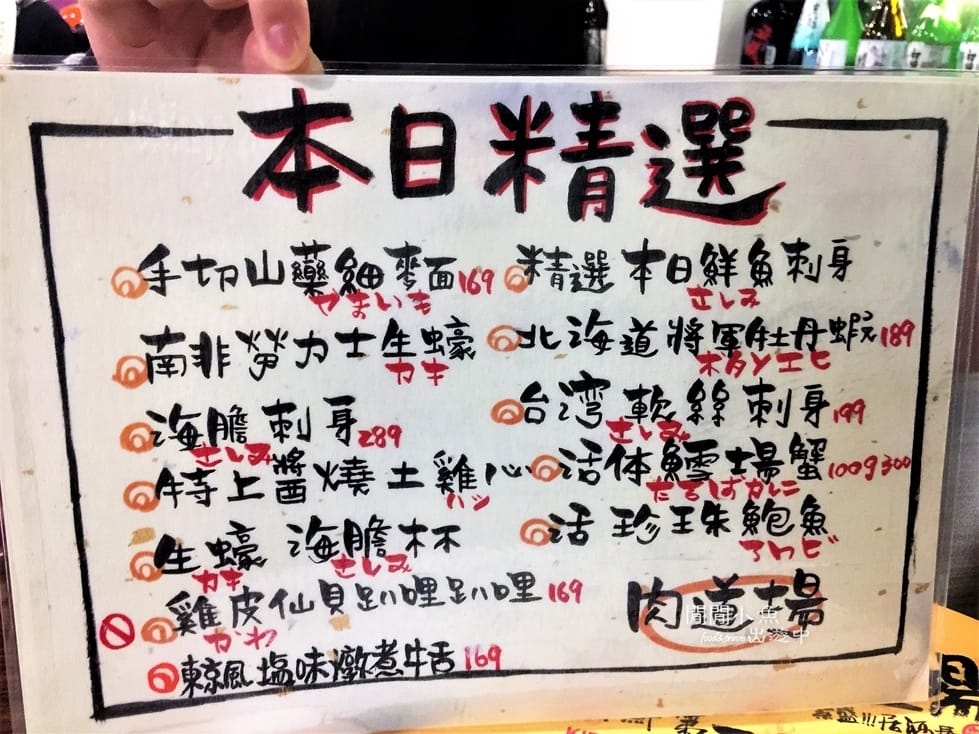 本日精選
手切山藥細麥面169
やまいも
南非勞力士生蠔
カキ
海膽刺身289
さしみ
特上醬燒土雞心
ハツ
生蠔海膽杯
カキ さしみ
雞皮仙貝趴哩趴哩169
かわ
東京風塩味燉煮牛舌169
精選本日鮮魚刺身
さしみ
北海道將軍牡丹蝦189
ホタンエヒ
台湾軟絲刺身199
さしみ
活体鱈場蟹100g300
たらばがに
活珍珠鮑魚
あわび
肉道場
閒閒小魚
food&travel出遊中